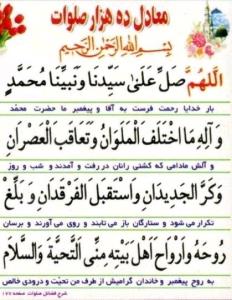 معادل ده هزار صلوات
بِسْمِ اللهِ الرَّحْمنِ الرَّحِيمِ
اَللّهُمَّ صَلِّ عَلىٰ سَيِّدِنَا وَنَبِيِّنَا مُحَمَّدٍ
بار خدایا رحمت فرست به آقا و پیغمبر ما حضرت محمّد
وَ آلِهِ مَا اخْتَلَفَ الْمَلَوَانِ وَتَعاقَبَ الْعَصْرانِ
و آلش مادامی که کشتی رانان در رفت و آمدند و شب و روز
وَكَرَّ الْجَدِيدَانِ وَاسْتَقْبَلَ الْفَرْقَدَانِ وَ بَلِّغْ
تکرار می شود و ستارگان باز می تابند و روی می آورند و برسان
رُوحَهُ وَاَرْوَاحَ اَهْلِ بَيْتِهِ مِنِّى التَّحِيَّةَ وَالسَّلَامَ
به روح پیغمبر و خاندان گرامیش از طرف من تحیّت و درودی خالص
شرح فضائل صلوات صفحه ۱۷۷